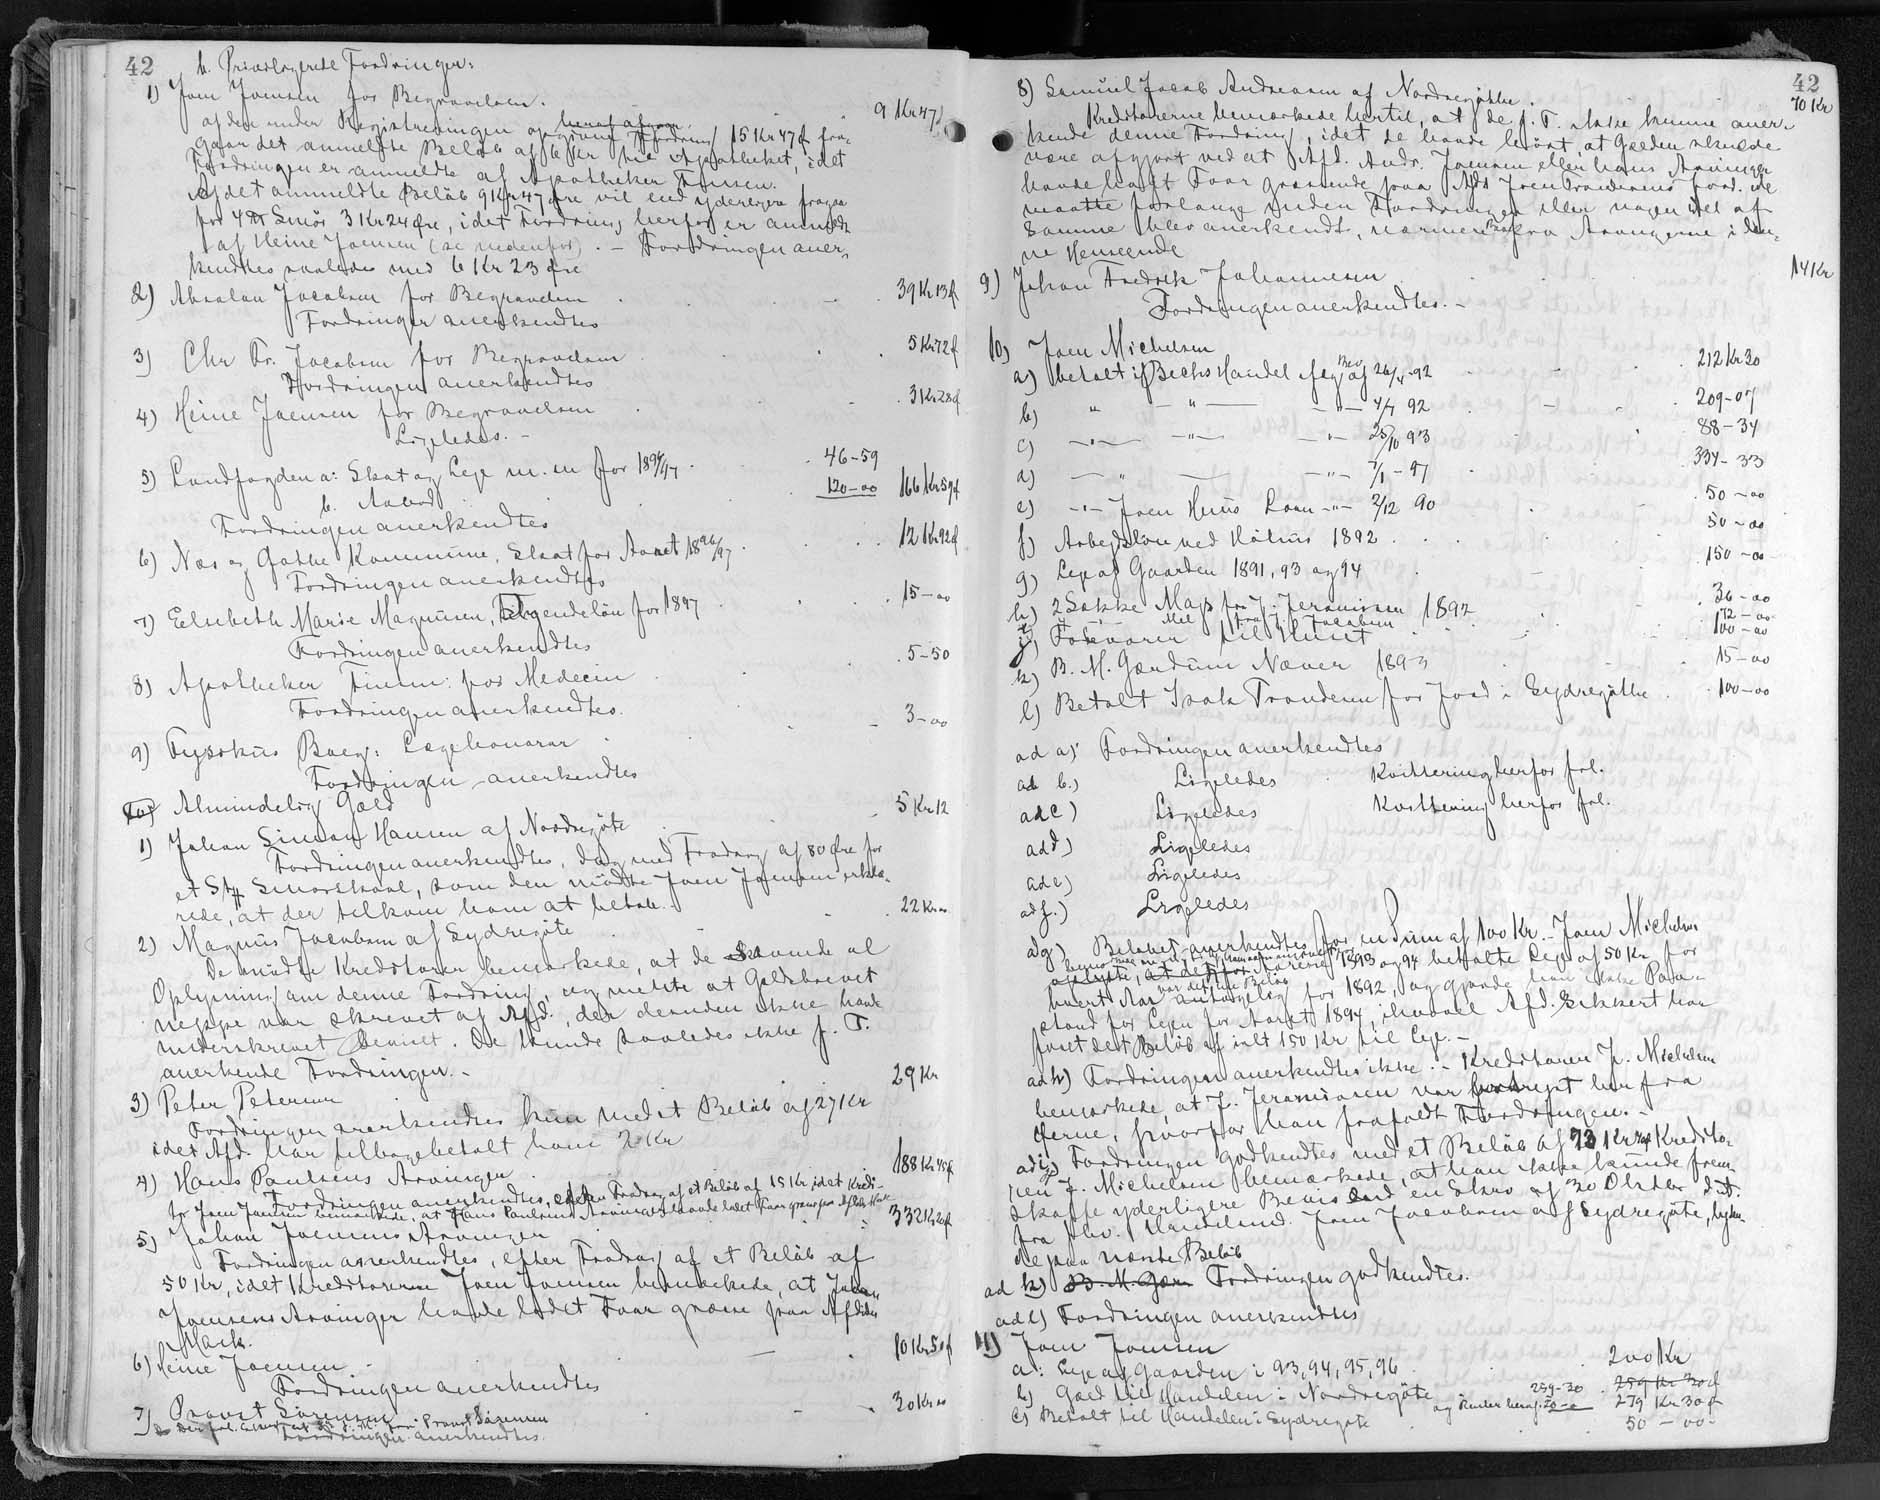 42
b. Privilegerede Fordringer:
1) Joen Joensen for Begravelsen. 9 Kr 47 ø
af den under Registreringen opgivne Fordring 15 Kr 47 ø fra-
gaar det anmeldte Beløb af 6 Kr til Apotheket, idet
Fordringen er anmeldte af Apotheker Finsen.
Af det anmeldte Beløb 9 Kr 47 Øre vil end yderligere fragaa
for 4 Smør 3 Kr 24 Øre, idet Fordring herfor er anmeldt
af Heine Joensen (se nedenfor). - Fordringen aner-
kendtes saaledes med 6 Kr 23 Øre
2) Absalon Jacobsen for Begravelsen 39 Kr 13 ø
Fordringen anerkendtes
3) Chr Fr. Jacobsen for Begravelsen 5 Kr 72 ø
Fordringen anerkendtes
4) Heine Joensen for Begravelsen 3 Kr 28 ø
Ligeledes. -
5) Landfogden a: Skat og Leje m. m for 1896/97 46-59
b. Aabod 120-00 166 Kr 59 ø
Fordringen anerkendtes
6) Næs og Gøthe Kommune, Skat for Aaret 1896/97 12 Kr 92 ø
Fordringen anerkendtes
7) Elsebeth Marie Magnusen, Tilgendeløn for 1897 15-00
Fordringen anerkendtes
8) Apotheker Finsen: for Medecin 5-50
Fordringen anerkendtes.
9) Fysikus Boeg: Lægehonorar 3-00
Fordringen anerkendtes
Almindelig Gæld
1) Johan Simon Hansen af Nordregöte 5 Kr 12
Fordringen anerkendtes, dog med Fradrag af 80 Øre for
et Stk Smørskaal, som den mødte Joen Joensen erklæ-
rede, at der tilkom ham at betale.
2) Magnus Jacobsen af Sydregöte 22 Kr 00
De mødte Kreditorer bemærkede, at de savnede al
Oplysning om denne Fordring, og mente at Gældsbrevet
neppe var skrevet af Afd., der desuden ikke havde
underskrevet Beviset. De kunde saaledes ikke f. T.
anerkende Fordringen. -
3) Peter Petersen 29 Kr
Fordringen anerkendtes kun med et Beløb af 27 Kr
idet Afd. har tilbagebetalt ham 2 Kr
4) Hans Paulsens Arvinger 188 Kr 45 ø
Fordringen anerkendtes, efter Fradrag af et Beløb af 15 Kr, idet Kredi-
tor Joen Joensen bemærkede, at Hans Paulsens Arvinger havde ladet Faar græsse paa Afdødes Mark.
5) Johan Joensens Arvinger 332 Kr 20 ø
Fordringen anerkendtes, efter Fradrag af et Beløb af
50 Kr, idet Kreditoren Joen Joensen bemærkede, at Johan
Joensens Arvinger havde ladet Faar græsse paa Afdødes
Mark.
6) Heine Joensen 10 Kr 50 ø
Fordringen anerkendtes
7) Provst Sørensen 20 Kr 00
Fordringen anerkendtes.
42
8) Samuel Jacob Andreasen af Nordregøthe. 70 Kr
Kreditorerne bemærkede hertil, at de f. T. ikke kunne aner-
kende denne Fordring, idet de havde hørt, at Gælden skulde
være afgjort ved at Afd. Andr. Joensen eller hans Arvinger
havde haft Faar græssende paa Afd Joen Trondesens Jord. De
maatte forlange inden Fordringen eller nogen Del af
Samme blev anerkendt, nærmere Bevis fra Arvingerne i den-
ne Henseende
9) Johan Fredrik Johannesen 14 Kr
Fordringen anerkendtes. -
10) Joen Michelsen
a) betalt til Bechs Handel ifølge Bev af 26/4-92 212 Kr 30
b) " - " - - " - 4/7 92 209-07
c) - " - - " - - " - 25/10 93 88-34
d) - " - - " - 7/1-97 334-33
e) - " - Joen Huus Laan - " - 2/12 90 50-00
f) Arbejdsløn ved Kálhus 1892 50-00
g) Leje af Gaarden 1891, 93 og 94 150-00
h) 2 Sække Majs fra J. Jeremiasen 1892 36-00
i) Mel fra J. Jacobsen 72-00
j) Fødevarer til Huset 100-00
k) B. M. Gærdum Næver 1893 15-00
l) Betalt Isak Trondesen for Jord i Sydregöthe 100-00
ad a) Fordringen anerkendtes
ad b.) Ligeledes Kvittering herfor fol.
ad c) Ligeledes Kvittering herfor fol.
ad d) Ligeledes
ad e) Ligeledes
ad f.) Ligeledes
ad g) Beløbet anerkendtes for en Sum af 100 Kr. - Joen Michelsen
Aarene 1893 og 94 betalte Leje af 50 Kr for
hvert Aar for 1892, og gjorde han ikke Paa-
stand for Lejen for Aaret 1894, ihvorvel Afd. sikkert har
faaet det Beløb af ialt 150 Kr til Leje. -
ad h) Fordringen anerkendtes ikke. - Kreditoren J. Michelsen
bemærkede, at J. Jeremiasen var bortrejst her fra
Øerne, hvorfor han frafaldt Fordringen. -
ad i) Fordringen godkendtes med et Beløb af 72 Kr Kredito-
ren J. Michelsen bemærkede, at han ikke kunde frem-
skaffe yderligere Bevis end en Skrv af 30 Oktbr d.A.
fra fhv. Handelsmd. Joen Jacobsen af Sydregöte, lyden-
de paa nævnte Beløb
ad k) B. M. Gærd Fordringen godkendtes.
ad l) Fordringen anerkendtes
11) Joen Joensen
a: Leje af Gaarden i 93, 94, 95, 96 200 Kr
b) Gæld til Handelen i Nordregöte 259-30 259 Kr 30 ø
og Renter heraf 20-0 279 Kr 30 ø
c) Betalt til Handelen i Sydregøte 50-00